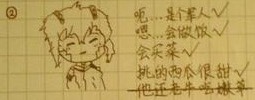 ②
呃…是个军人✓
嗯…会做饭✓
会买菜✓
挑的西瓜很甜✓
他还老牛吃嫩草